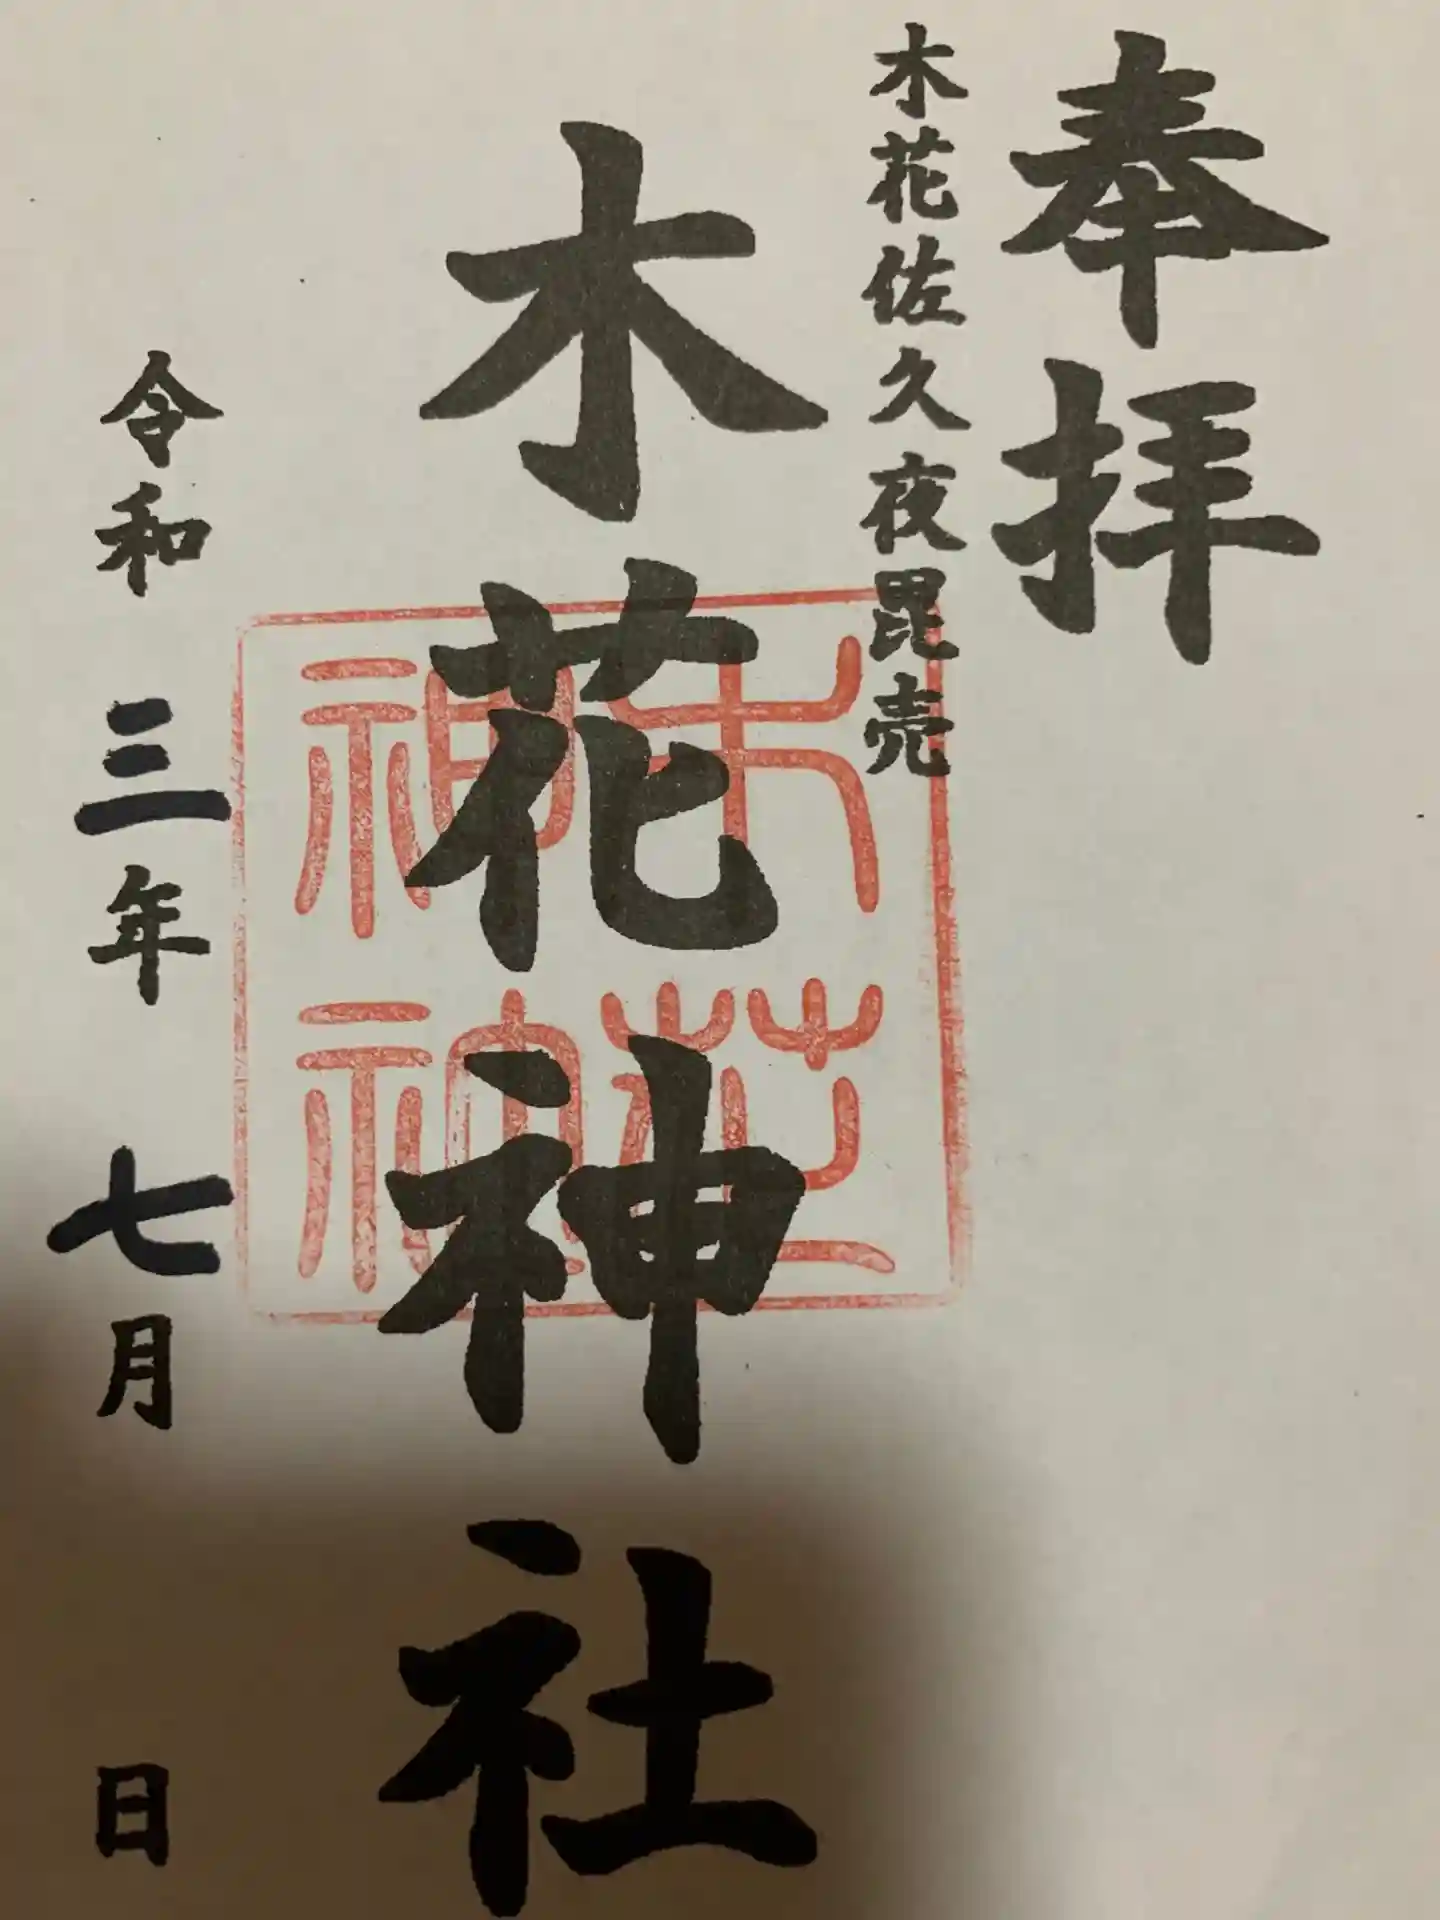 奉拝
木花佐久夜毘売
木花神社
木花
神社
令和三年七月 日